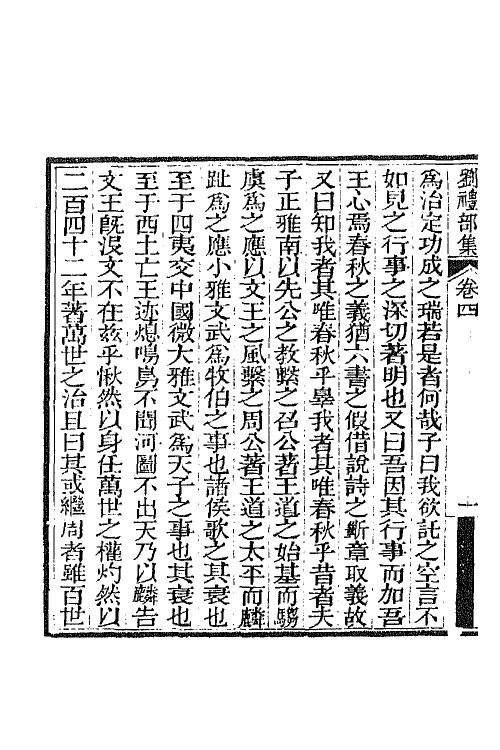 劉禮部集 卷四 一
爲治定功成之瑞若是者何哉子曰我欲託之空言不
如見之行事之深切著明也又曰吾因其行事而加吾
王心焉春秋之義猶六書之假借說詩之斷章取義故
又曰知我者其唯春秋乎辠我者其唯春秋乎昔者夫
子正雅南以先公之教繫之召公著王道之始基而騶
虞爲之應以文王之風繫之周公著王道之太平而麟
趾爲之應小雅文武爲牧伯之事也諸侯歌之其衰也
至于四夷交中國微大雅文武爲天子之事也其衰也
至于西土亡王迹熄鳴鳥不聞河圖不出天乃以麟告
文王旣沒文不在茲乎愀然以身任萬世之權灼然以
二百四十二年著萬世之治且曰其或繼周者雖百世